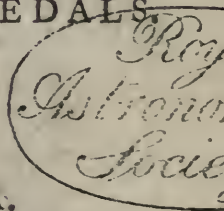 EDALS.
Roy
Astrono
Socie